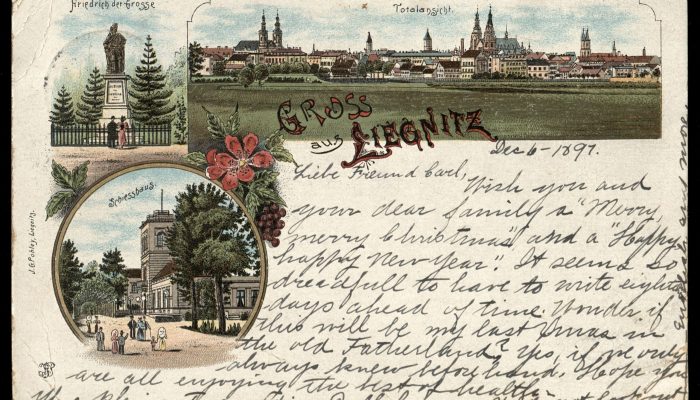 Friedrich der Grosse
Totalansicht.
Gruss
aus
Liegnitz
Schiesshaus.
J.G. Pohley, Liegnitz.
Dec 6 - 1897.
Liebe Freund Carl,
Wish you and
your dear family a "Merry,
merry Christmas" and a "Happy
happy New Year". It seems so
dreadfull to have to write
days ahead of time. Wonder if
this will be my last Xmas in
the old Fatherland? Yes, if we only
always knew before hand. Hope you
are all enjoying the best of health.